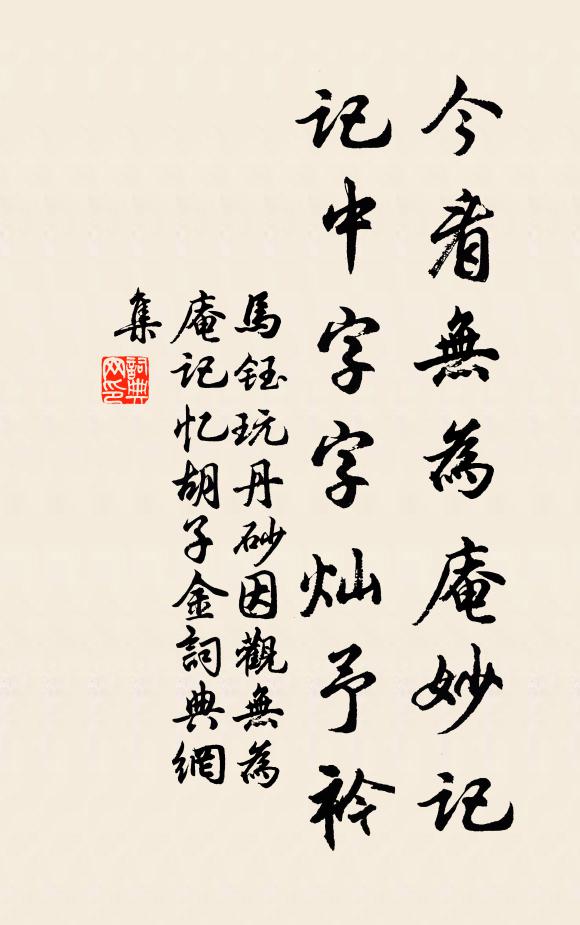 今看無為庵妙記
記中字字灿予衿
馬鈺玩丹砂因觀無為
庵记忆胡子金詞典網
集
詞典
网印